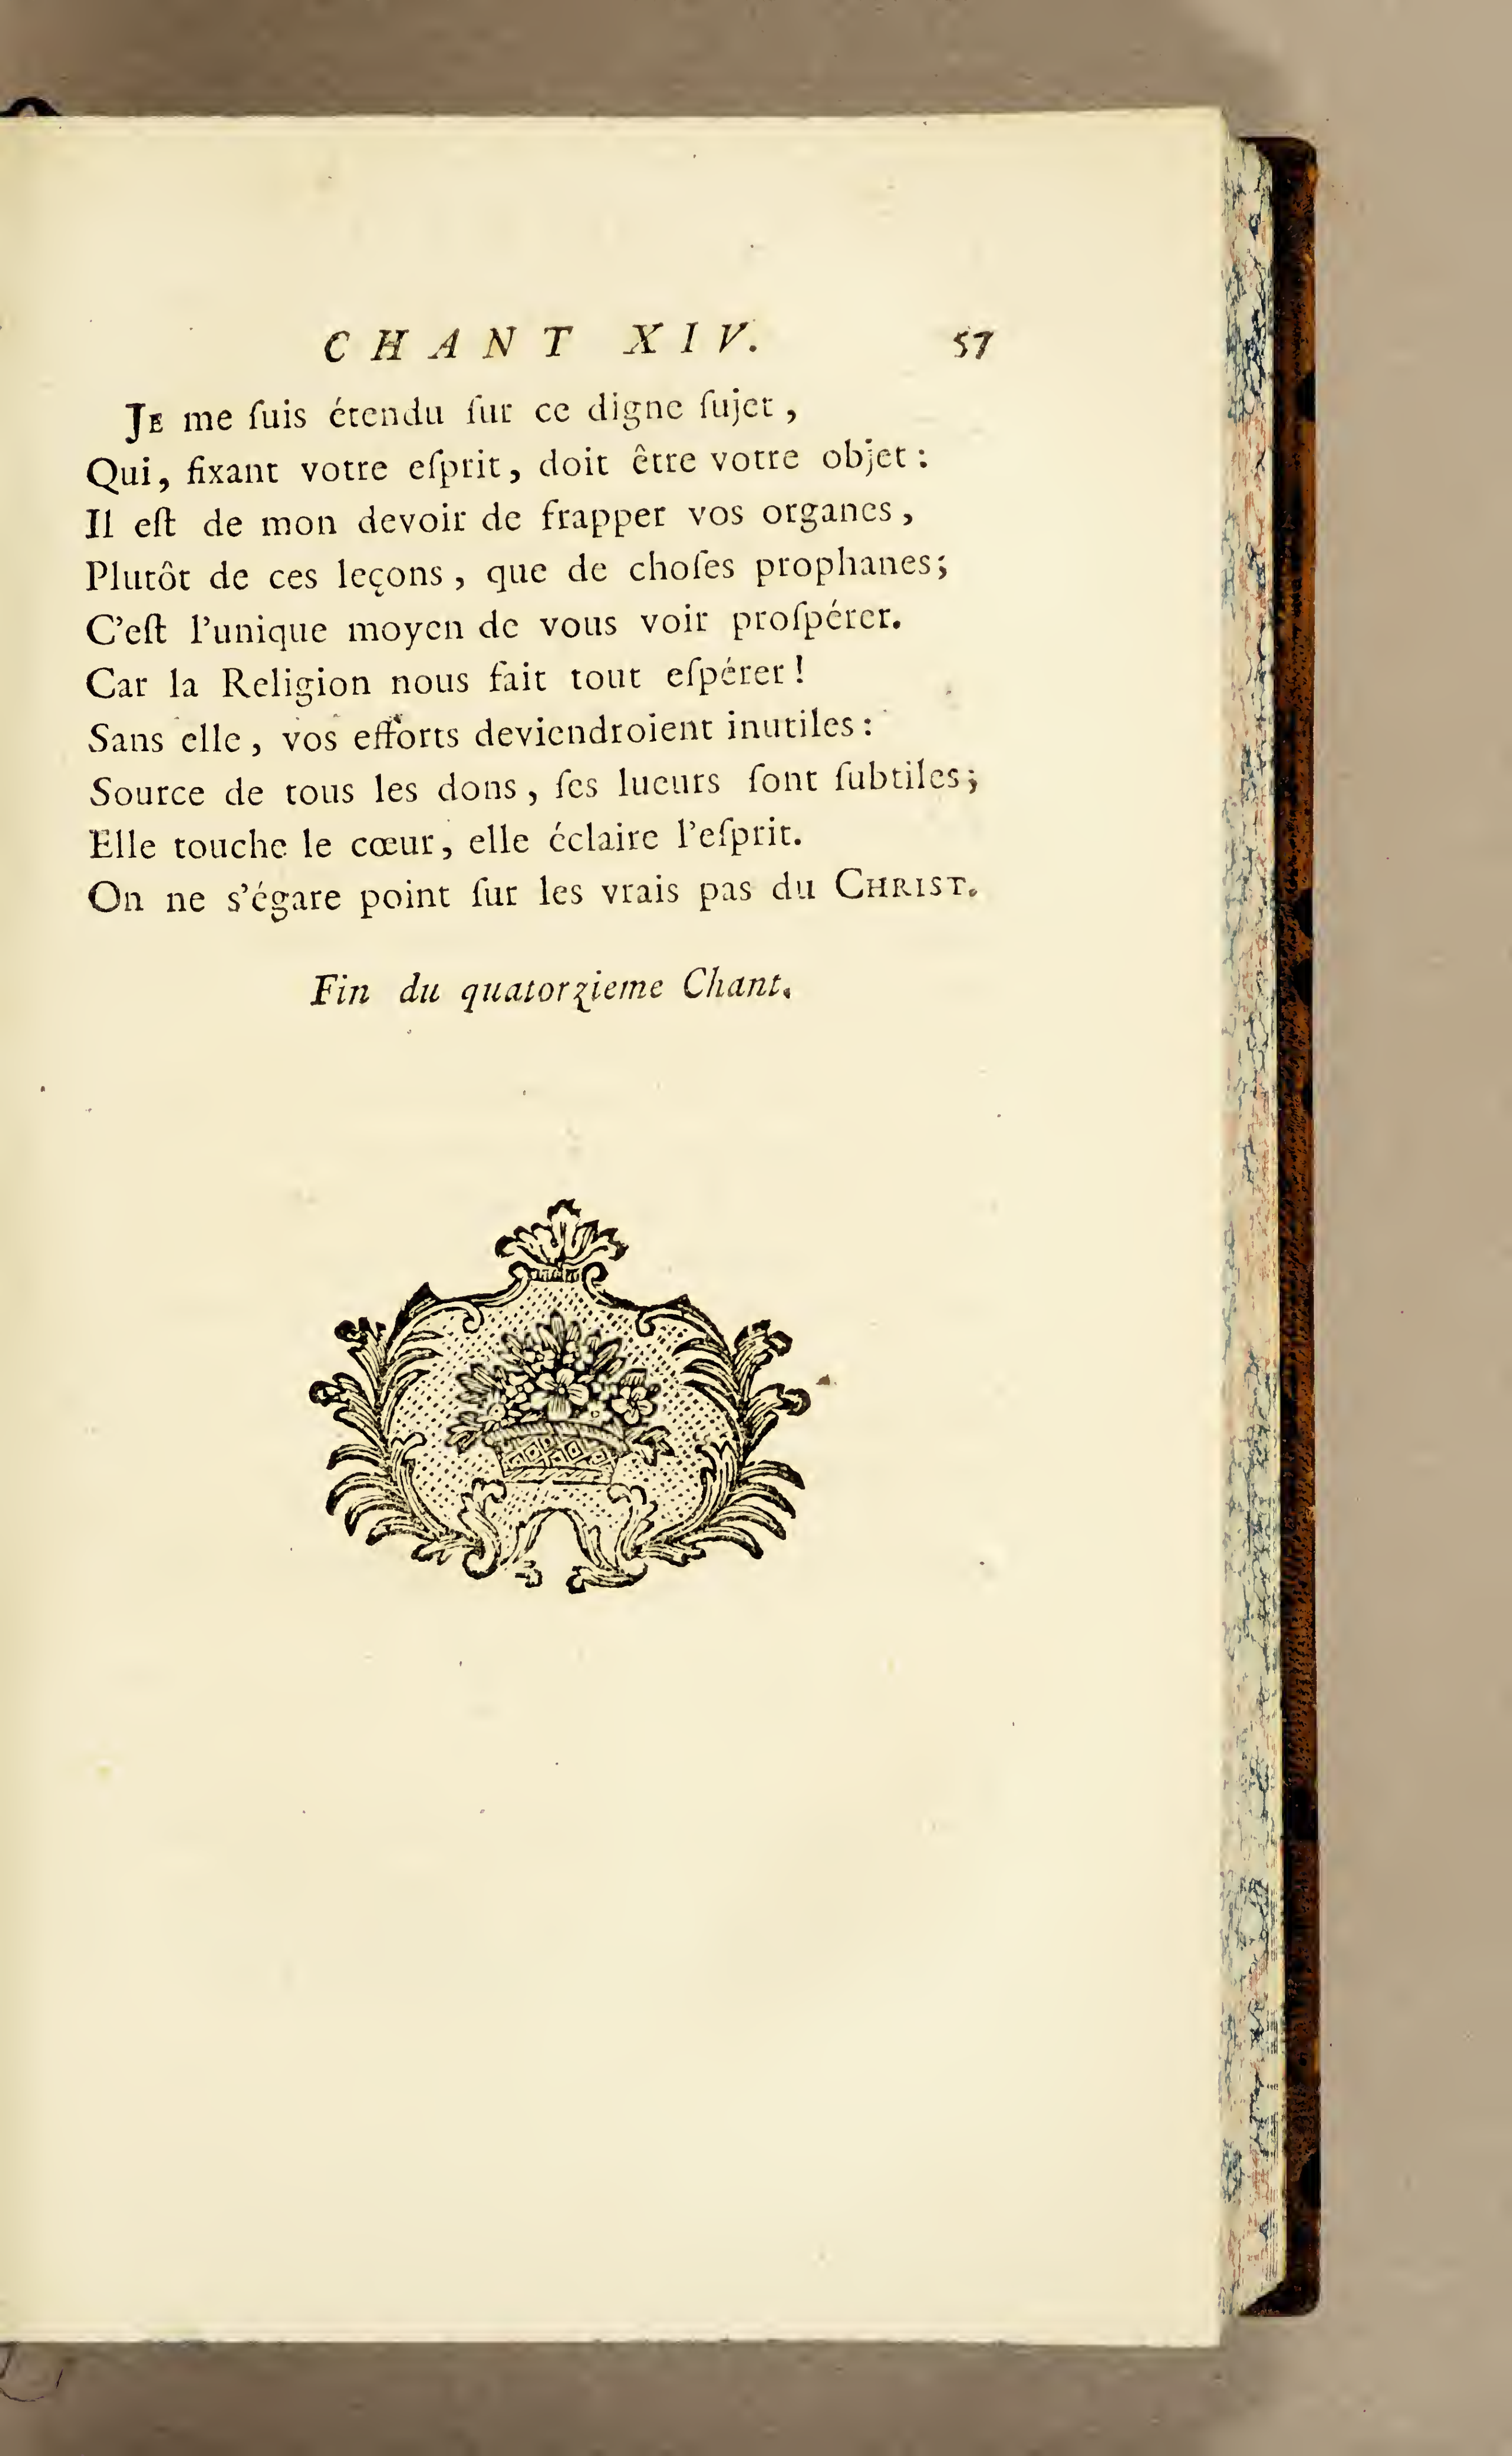 CHANT XIV. 57
JE me ſuis étendu ſur ce digne ſujet,
Qui, fixant votre eſprit, doit être votre objet :
Il eſt de mon devoir de frapper vos organes,
Plutôt de ces leçons, que de choſes prophanes;
C'eſt l'unique moyen de vous voir proſpérer.
Car la Religion nous fait tout eſpérer !
Sans elle, vos efforts deviendroient inutiles :
Source de tous les dons, ſes lueurs ſont ſubtiles;
Elle touche le cœur, elle éclaire l'eſprit.
On ne s'égare point ſur les vrais pas du CHRIST.
Fin du quatorzieme Chant.